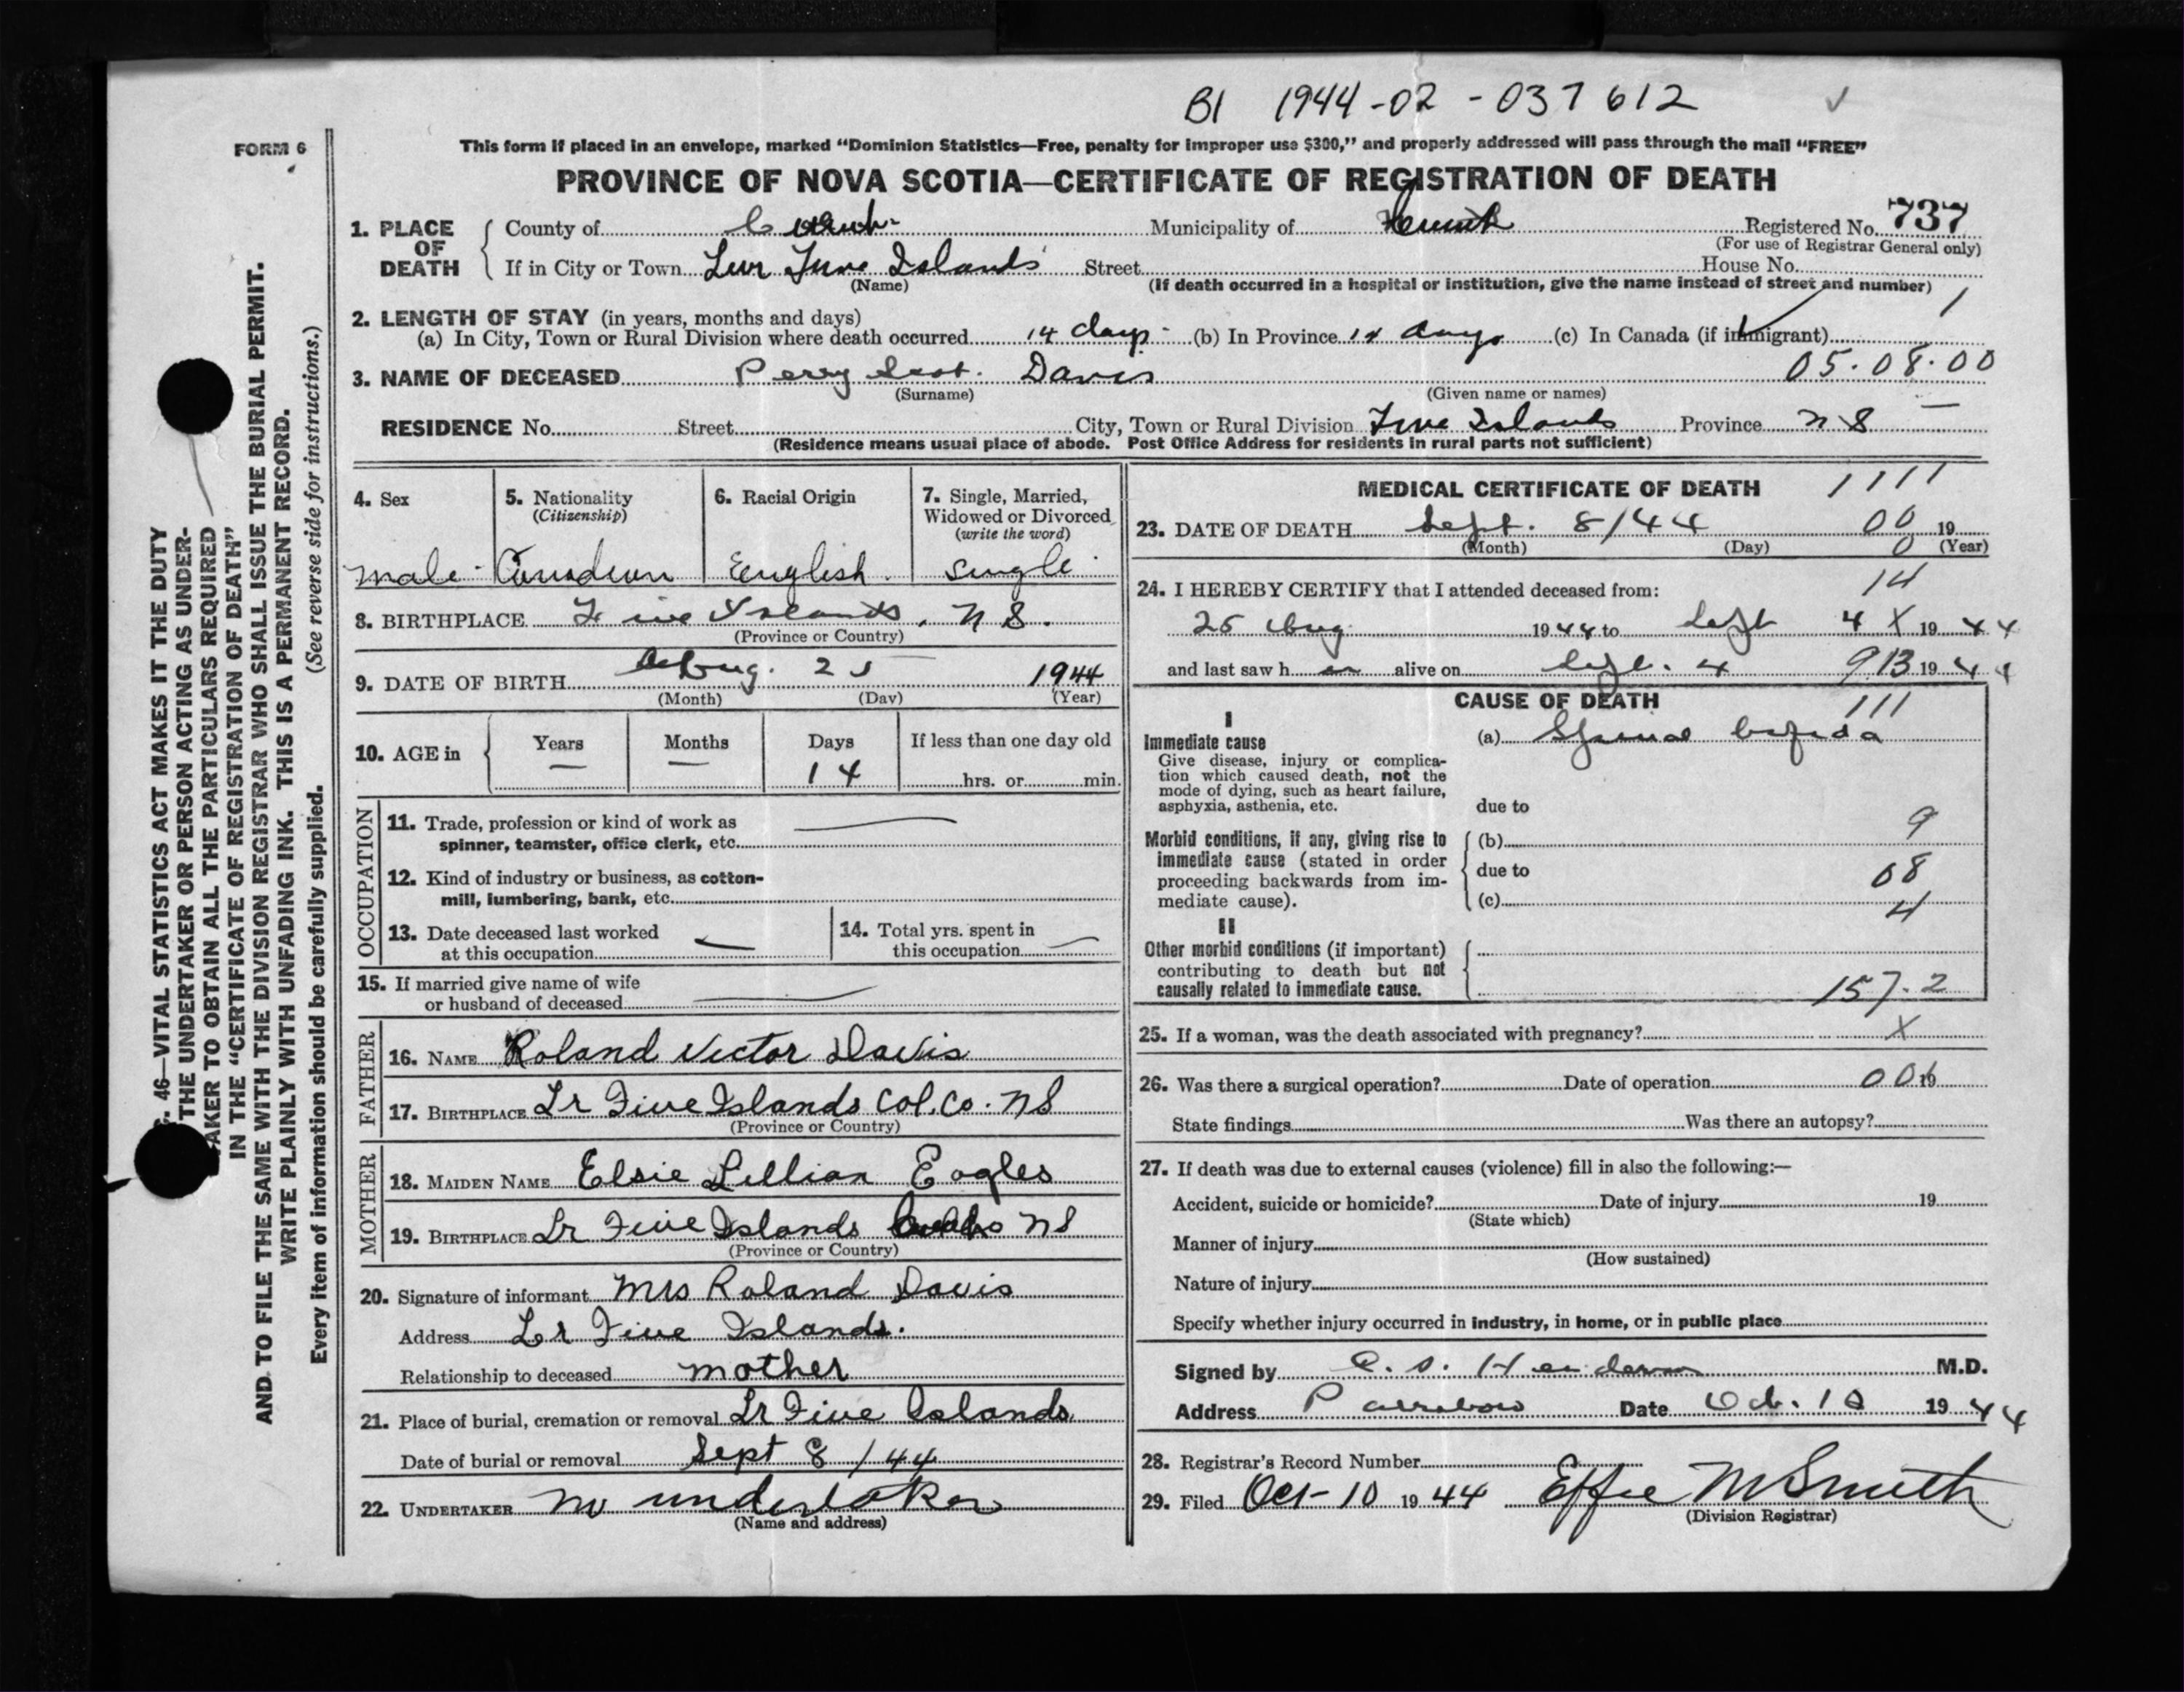 BI 1944-02-037612
FORM 6
This form if placed in an envelope, marked "Dominion Statistics—Free, penalty for improper use $300," and properly addressed will pass through the mail "FREE"
PROVINCE OF NOVA SCOTIA—CERTIFICATE OF REGISTRATION OF DEATH
1. PLACE OF DEATH
County of Municipality of Registered No. 737
(For use of Registrar General only)
If in City or Town Lwr Five Islands Street House No.
(Name)
(If death occurred in a hospital or institution, give the name instead of street and number) 1
2. LENGTH OF STAY (in years, months and days)
(a) In City, Town or Rural Division where death occurred 14 days (b) In Province 14 days (c) In Canada (if immigrant)
05.08.00
3. NAME OF DECEASED Perry Davis
(Surname) (Given name or names)
RESIDENCE No. Street City, Town or Rural Division Five Islands Province N S
(Residence means usual place of abode. Post Office Address for residents in rural parts not sufficient)
4. Sex
male
5. Nationality
(Citizenship)
Canadian
6. Racial Origin
English
7. Single, Married,
Widowed or Divorced
(write the word)
single
8. BIRTHPLACE Five Islands, N S.
(Province or Country)
9. DATE OF BIRTH Aug. 25 1944
(Month) (Day) (Year)
10. AGE in
Years Months Days If less than one day old
— — 14 hrs. or min.
OCCUPATION
11. Trade, profession or kind of work as
spinner, teamster, office clerk, etc.
12. Kind of industry or business, as cotton-
mill, lumbering, bank, etc.
13. Date deceased last worked
at this occupation
14. Total yrs. spent in
this occupation
15. If married give name of wife
or husband of deceased
FATHER
16. NAME Roland Victor Davis
17. BIRTHPLACE Lr Five Islands Col. Co. N S
(Province or Country)
MOTHER
18. MAIDEN NAME Elsie Lillian Eagles
19. BIRTHPLACE Lr Five Islands N S
(Province or Country)
20. Signature of informant Mrs Roland Davis
Address Lr Five Islands.
Relationship to deceased mother
21. Place of burial, cremation or removal Lr Five Islands
Date of burial or removal Sept 8 / 44
22. UNDERTAKER no undertaker
(Name and address)
MEDICAL CERTIFICATE OF DEATH 1111
23. DATE OF DEATH Sept. 8/44 00 19
(Month) (Day) 0 (Year)
24. I HEREBY CERTIFY that I attended deceased from: 14
25 Aug 1944 to Sept 4 X 1944
and last saw h alive on Sept. 4 913 1944
CAUSE OF DEATH 111
I
Immediate cause
Give disease, injury or complica-
tion which caused death, not the
mode of dying, such as heart failure,
asphyxia, asthenia, etc.
(a) Spinal bifida
due to
Morbid conditions, if any, giving rise to
immediate cause (stated in order
proceeding backwards from im-
mediate cause).
(b) 9
due to 08
(c) 4
II
Other morbid conditions (if important)
contributing to death but not
causally related to immediate cause.
157.2
25. If a woman, was the death associated with pregnancy? X
26. Was there a surgical operation? Date of operation 19
State findings Was there an autopsy?
27. If death was due to external causes (violence) fill in also the following:—
Accident, suicide or homicide? Date of injury 19
(State which)
Manner of injury
(How sustained)
Nature of injury
Specify whether injury occurred in industry, in home, or in public place
Signed by Henderson M.D.
Address Parrsboro Date Oct. 10 1944
28. Registrar's Record Number
29. Filed Oct-10 1944 Effie M Smith
(Division Registrar)
46—VITAL STATISTICS ACT MAKES IT THE DUTY
THE UNDERTAKER OR PERSON ACTING AS UNDER-
TAKER TO OBTAIN ALL THE PARTICULARS REQUIRED
IN THE "CERTIFICATE OF REGISTRATION OF DEATH"
AND TO FILE THE SAME WITH THE DIVISION REGISTRAR WHO SHALL ISSUE THE BURIAL PERMIT.
WRITE PLAINLY WITH UNFADING INK. THIS IS A PERMANENT RECORD.
Every item of information should be carefully supplied. (See reverse side for instructions.)